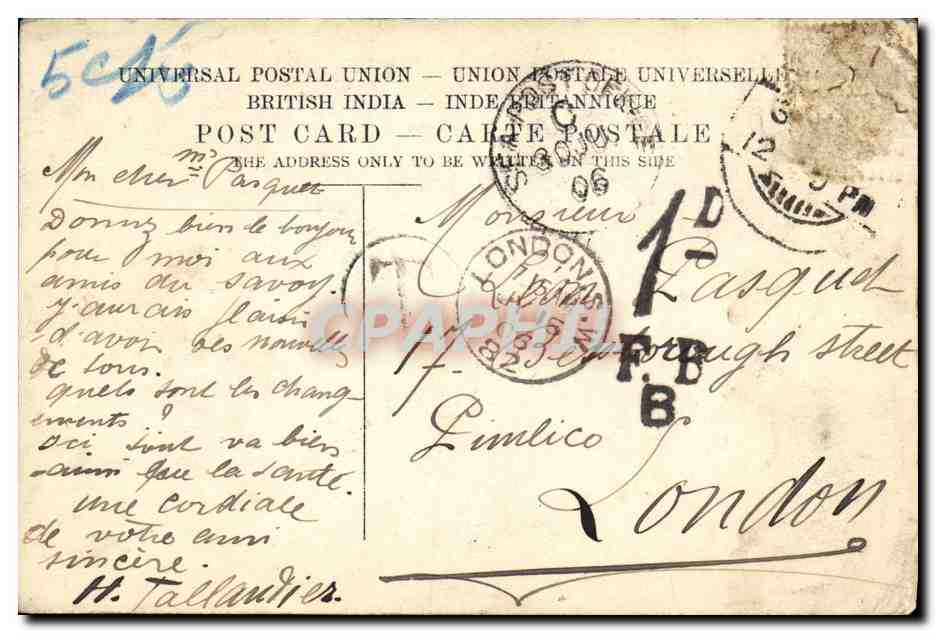 5c
UNIVERSAL POSTAL UNION — UNION POSTALE UNIVERSELLE
BRITISH INDIA — INDE BRITANNIQUE
POST CARD — CARTE POSTALE
THE ADDRESS ONLY TO BE WRITTEN ON THIS SIDE
SEA POST OFFICE
C
06
12
PM
Mon cher Mr Pasquet
Donnez bien le bonjour
pour moi aux
amis du Savoy.
J'aurais plaisir
d'avoir des nouvelles
de tous.
quels sont les chang-
ements ?
ici tout va bien
ainsi que la santé.
une cordiale
de votre ami
sincère.
H. Tallandier.
T
LONDON. S.W.
06
82
1D
F.B
B
Monsieur
Pasquet
17- street
Pimlico
London
CPAPHIL